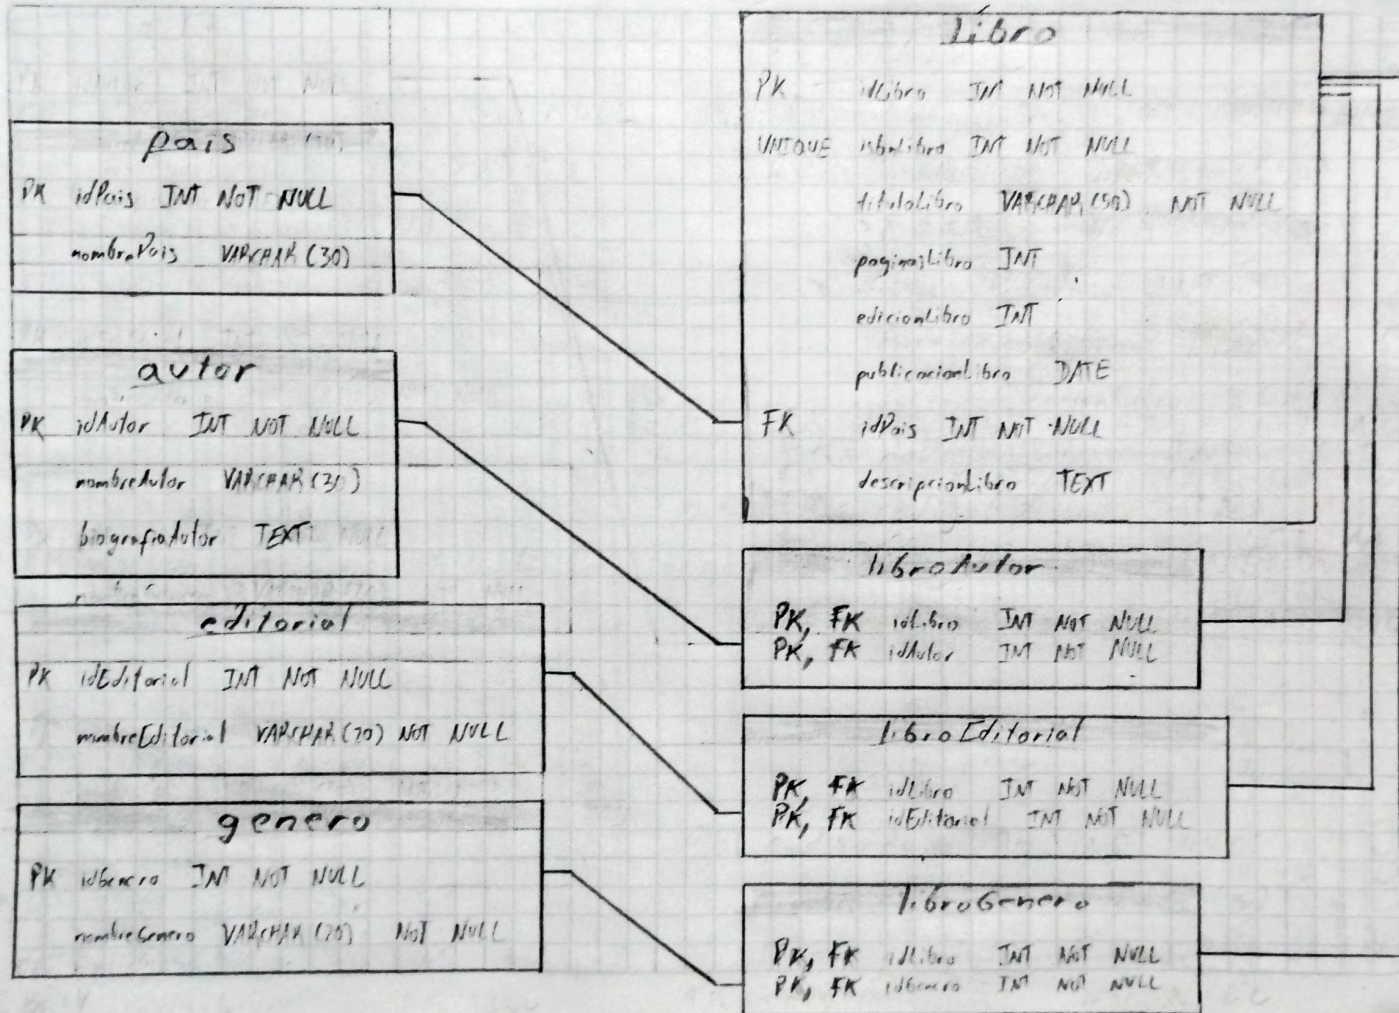 pais
PK idPais INT NOT NULL
nombrePais VARCHAR (30)
autor
PK idAutor INT NOT NULL
nombreAutor VARCHAR (30)
biografiaAutor TEXT
editorial
PK idEditorial INT NOT NULL
nombreEditorial VARCHAR (20) NOT NULL
genero
PK idGenero INT NOT NULL
nombreGenero VARCHAR (20) NOT NULL
libro
PK idLibro INT NOT NULL
UNIQUE isbnLibro INT NOT NULL
tituloLibro VARCHAR (50) NOT NULL
paginasLibro INT
edicionLibro INT
publicacionLibro DATE
FK idPais INT NOT NULL
descripcionLibro TEXT
libroAutor
PK, FK idLibro INT NOT NULL
PK, FK idAutor INT NOT NULL
libroEditorial
PK, FK idLibro INT NOT NULL
PK, FK idEditorial INT NOT NULL
libroGenero
PK, FK idLibro INT NOT NULL
PK, FK idGenero INT NOT NULL